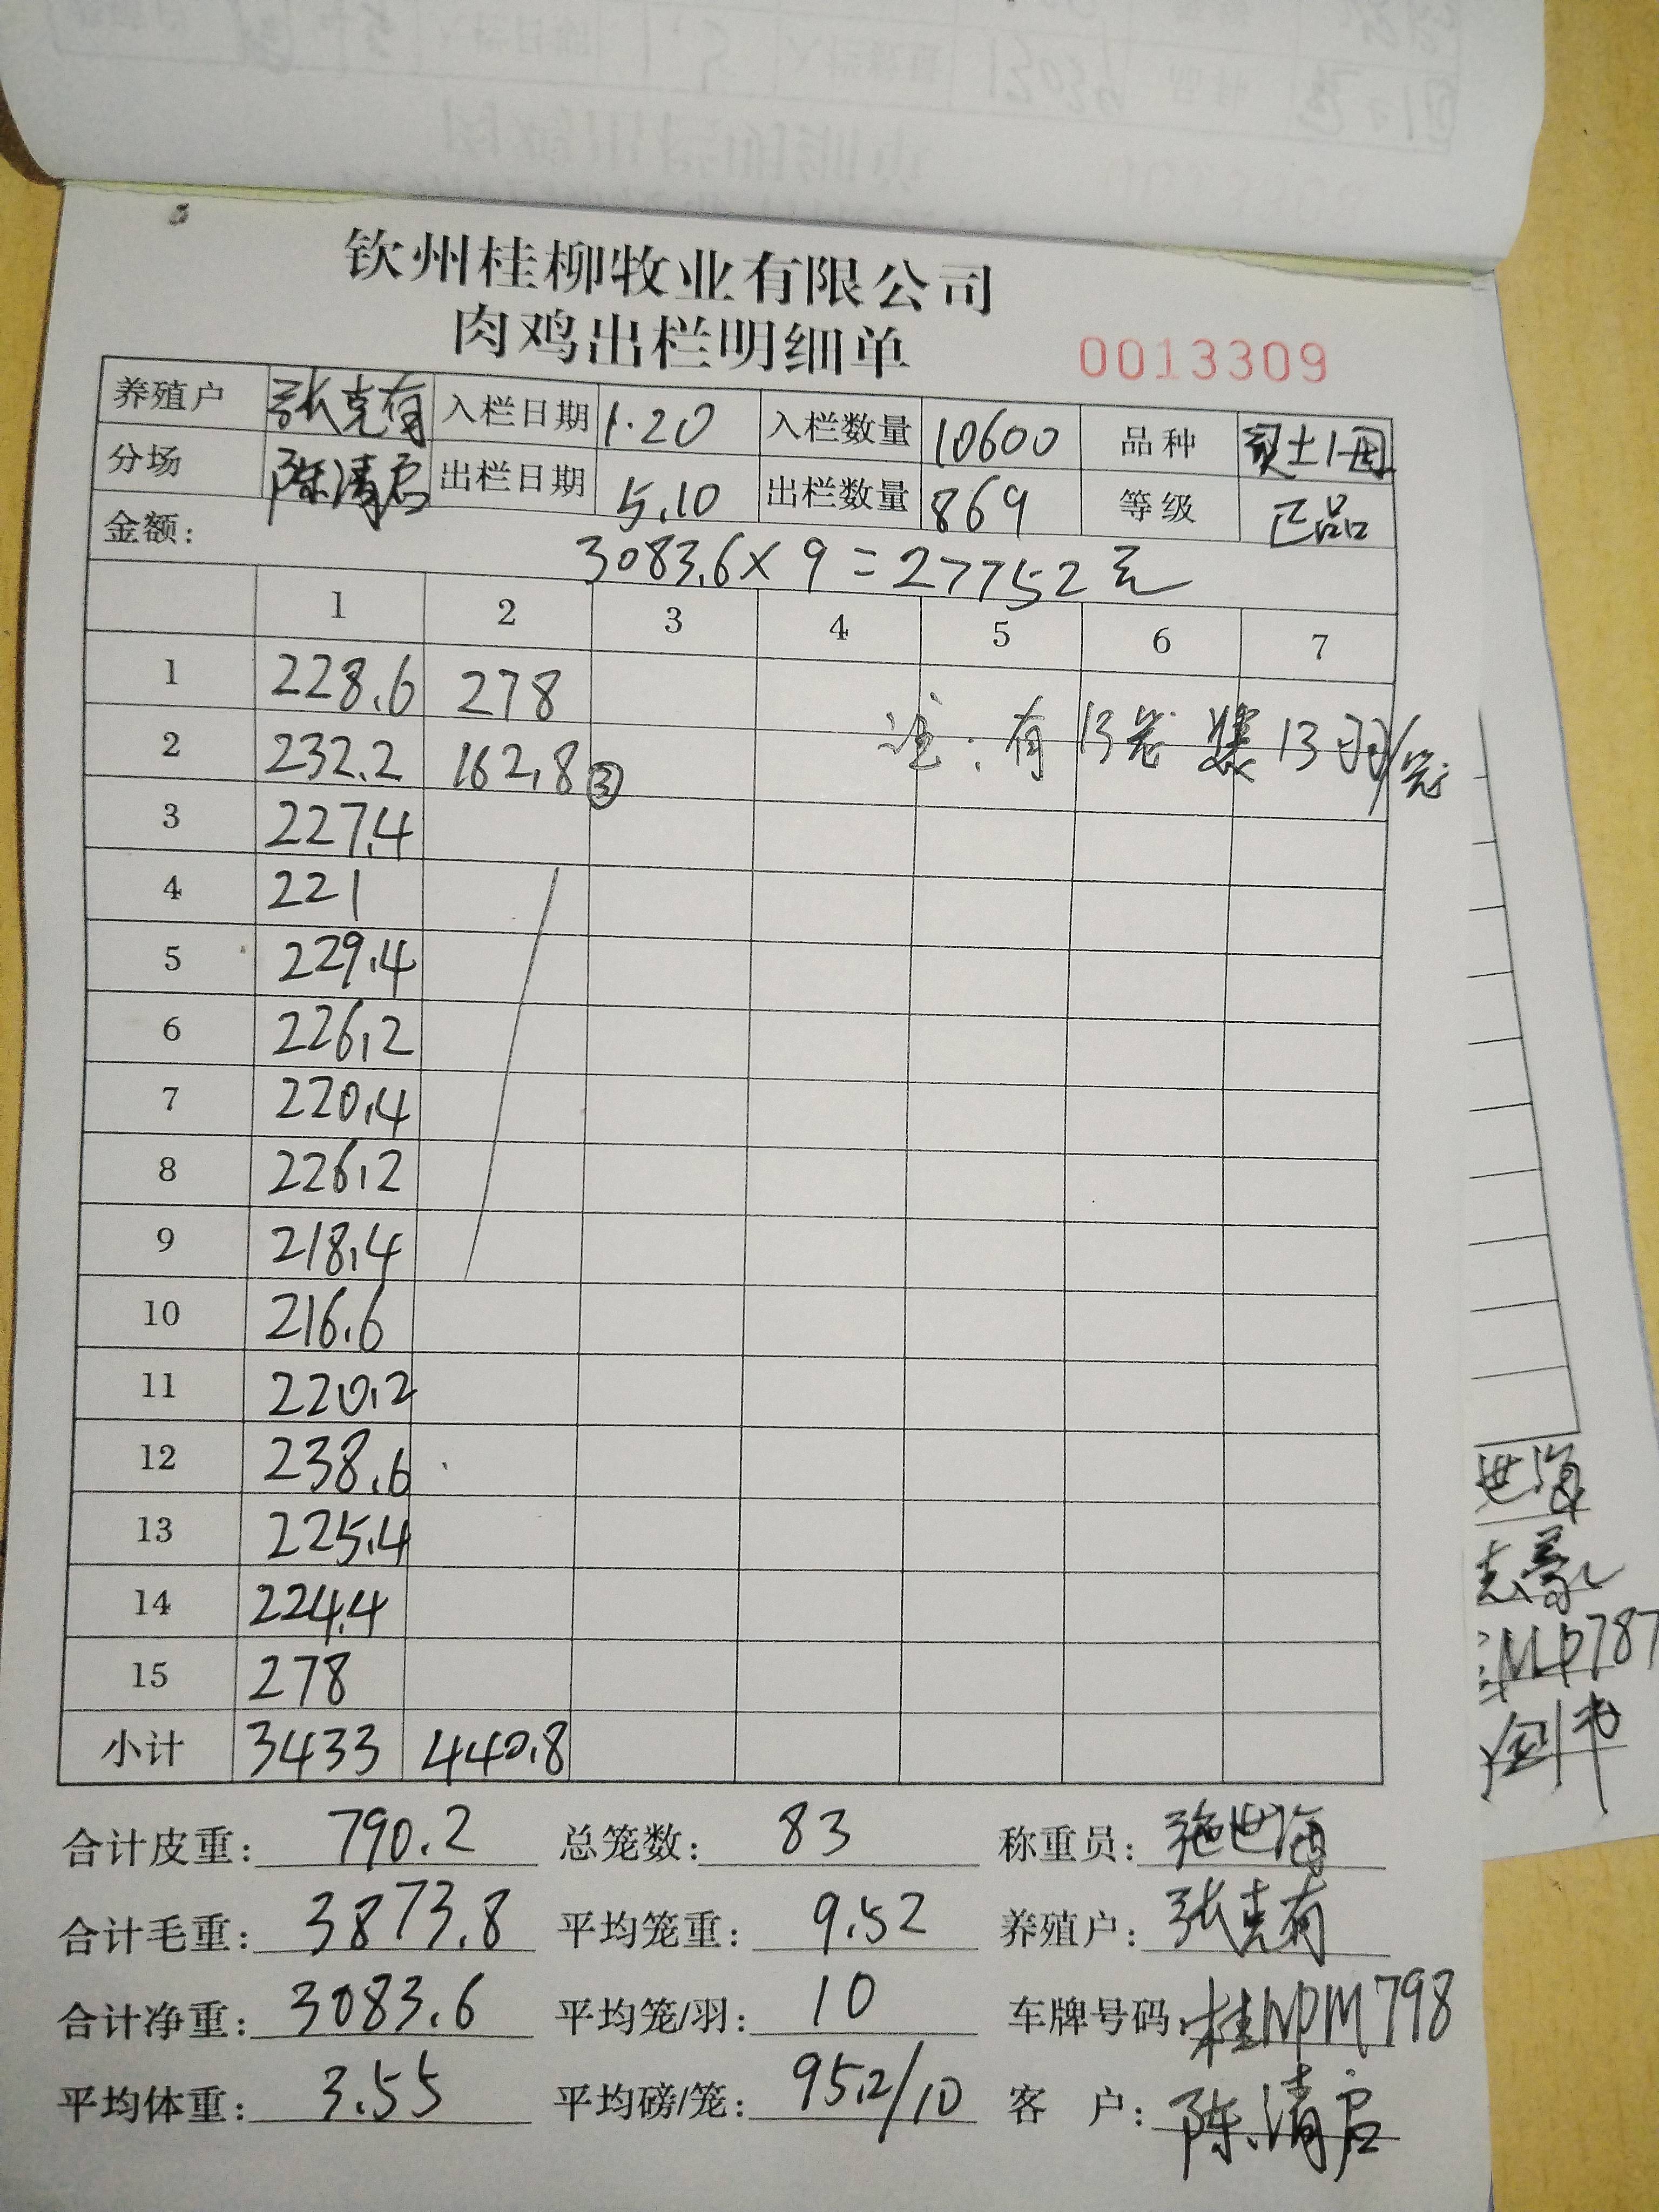 钦州桂柳牧业有限公司
肉鸡出栏明细单
0013309
养殖户 张克有 入栏日期 1.20 入栏数量 10600 品种
分场 陈清启 出栏日期 5.10 出栏数量 869 等级 正品
金额: 3083.6×9=27752元
1 2 3 4 5 6 7
1 228.6 278
2 232.2 162.8③ 注:有13笼装13羽/笼
3 227.4
4 221
5 229.4
6 226.2
7 220.4
8 226.2
9 218.4
10 216.6
11 220.2
12 238.6
13 225.4
14 224.4
15 278
小计 3433 440.8
合计皮重: 790.2 总笼数: 83 称重员: 施世海
合计毛重: 3873.8 平均笼重: 9.52 养殖户: 张克有
合计净重: 3083.6 平均笼/羽: 10 车牌号码: 桂NPM798
平均体重: 3.55 平均磅/笼: 95.2/10 客 户: 陈清启
世海